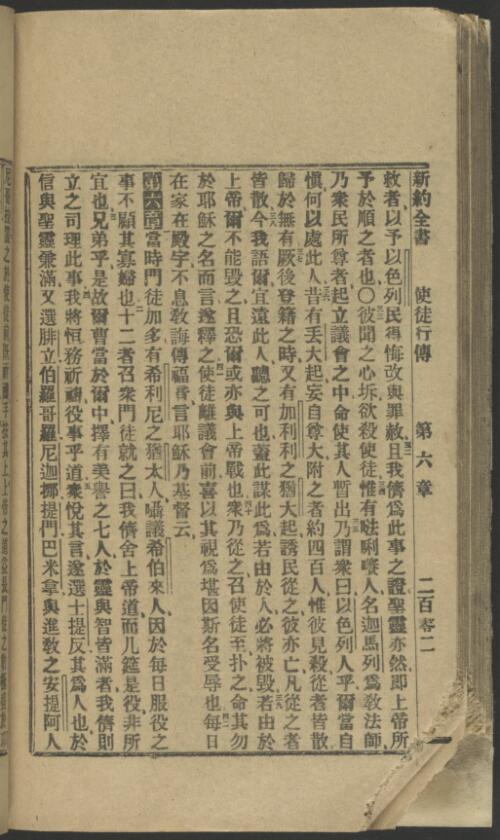 新約全書 使徒行傳 第六章 二百零二
救者以予以色列民得悔改與罪赦且我儕爲此事之證聖靈亦然卽上帝所
予於順之者也〇彼聞之心坼欲殺使徒惟有𠵽唎㘔人名迦馬列爲敎法師
乃衆民所尊者起立議會之中命使其人暫出乃謂衆曰以色列人乎爾當自
愼何以處此人昔有丢大起妄自尊大附之者約四百人惟彼見殺從者皆散
歸於無有厥後登籍之時又有加利利之猶大起誘民從之彼亦亡凡從之者
皆散今我語爾宜遠此人聽之可也蓋此謀此爲若由於人必將被毁若由於
上帝爾不能毁之且恐爾或亦與上帝戰也衆乃從之召使徒至扑之命其勿
於耶穌之名而言遂釋之使徒離議會前喜以其視爲堪因斯名受辱也每日
在家在殿宇不息敎誨傳福音言耶穌乃基督云
第六章當時門徒加多有希利尼之猶太人囁議希伯來人因於每日服役之
事不顧其寡婦也十二者召衆門徒就之曰我儕舍上帝道而几筵是役非所
宜也兄弟乎是故爾曹當於爾中擇有美譽之七人於靈與智皆滿者我儕則
立之司理此事我將恒務祈禱役事乎道衆悅其言遂選士提反其爲人也於
信與聖靈兼滿又選腓立伯羅哥羅尼迦挪提門巴米拿與進敎之安提阿人